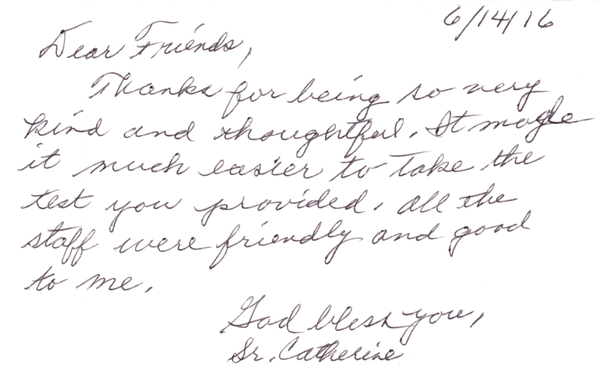 6/14/16
Dear Friends,
Thanks for being so very
kind and thoughtful. It made
it much easier to take the
test you provided. All the
staff were friendly and good
to me.
God bless you,
Sr. Catherine